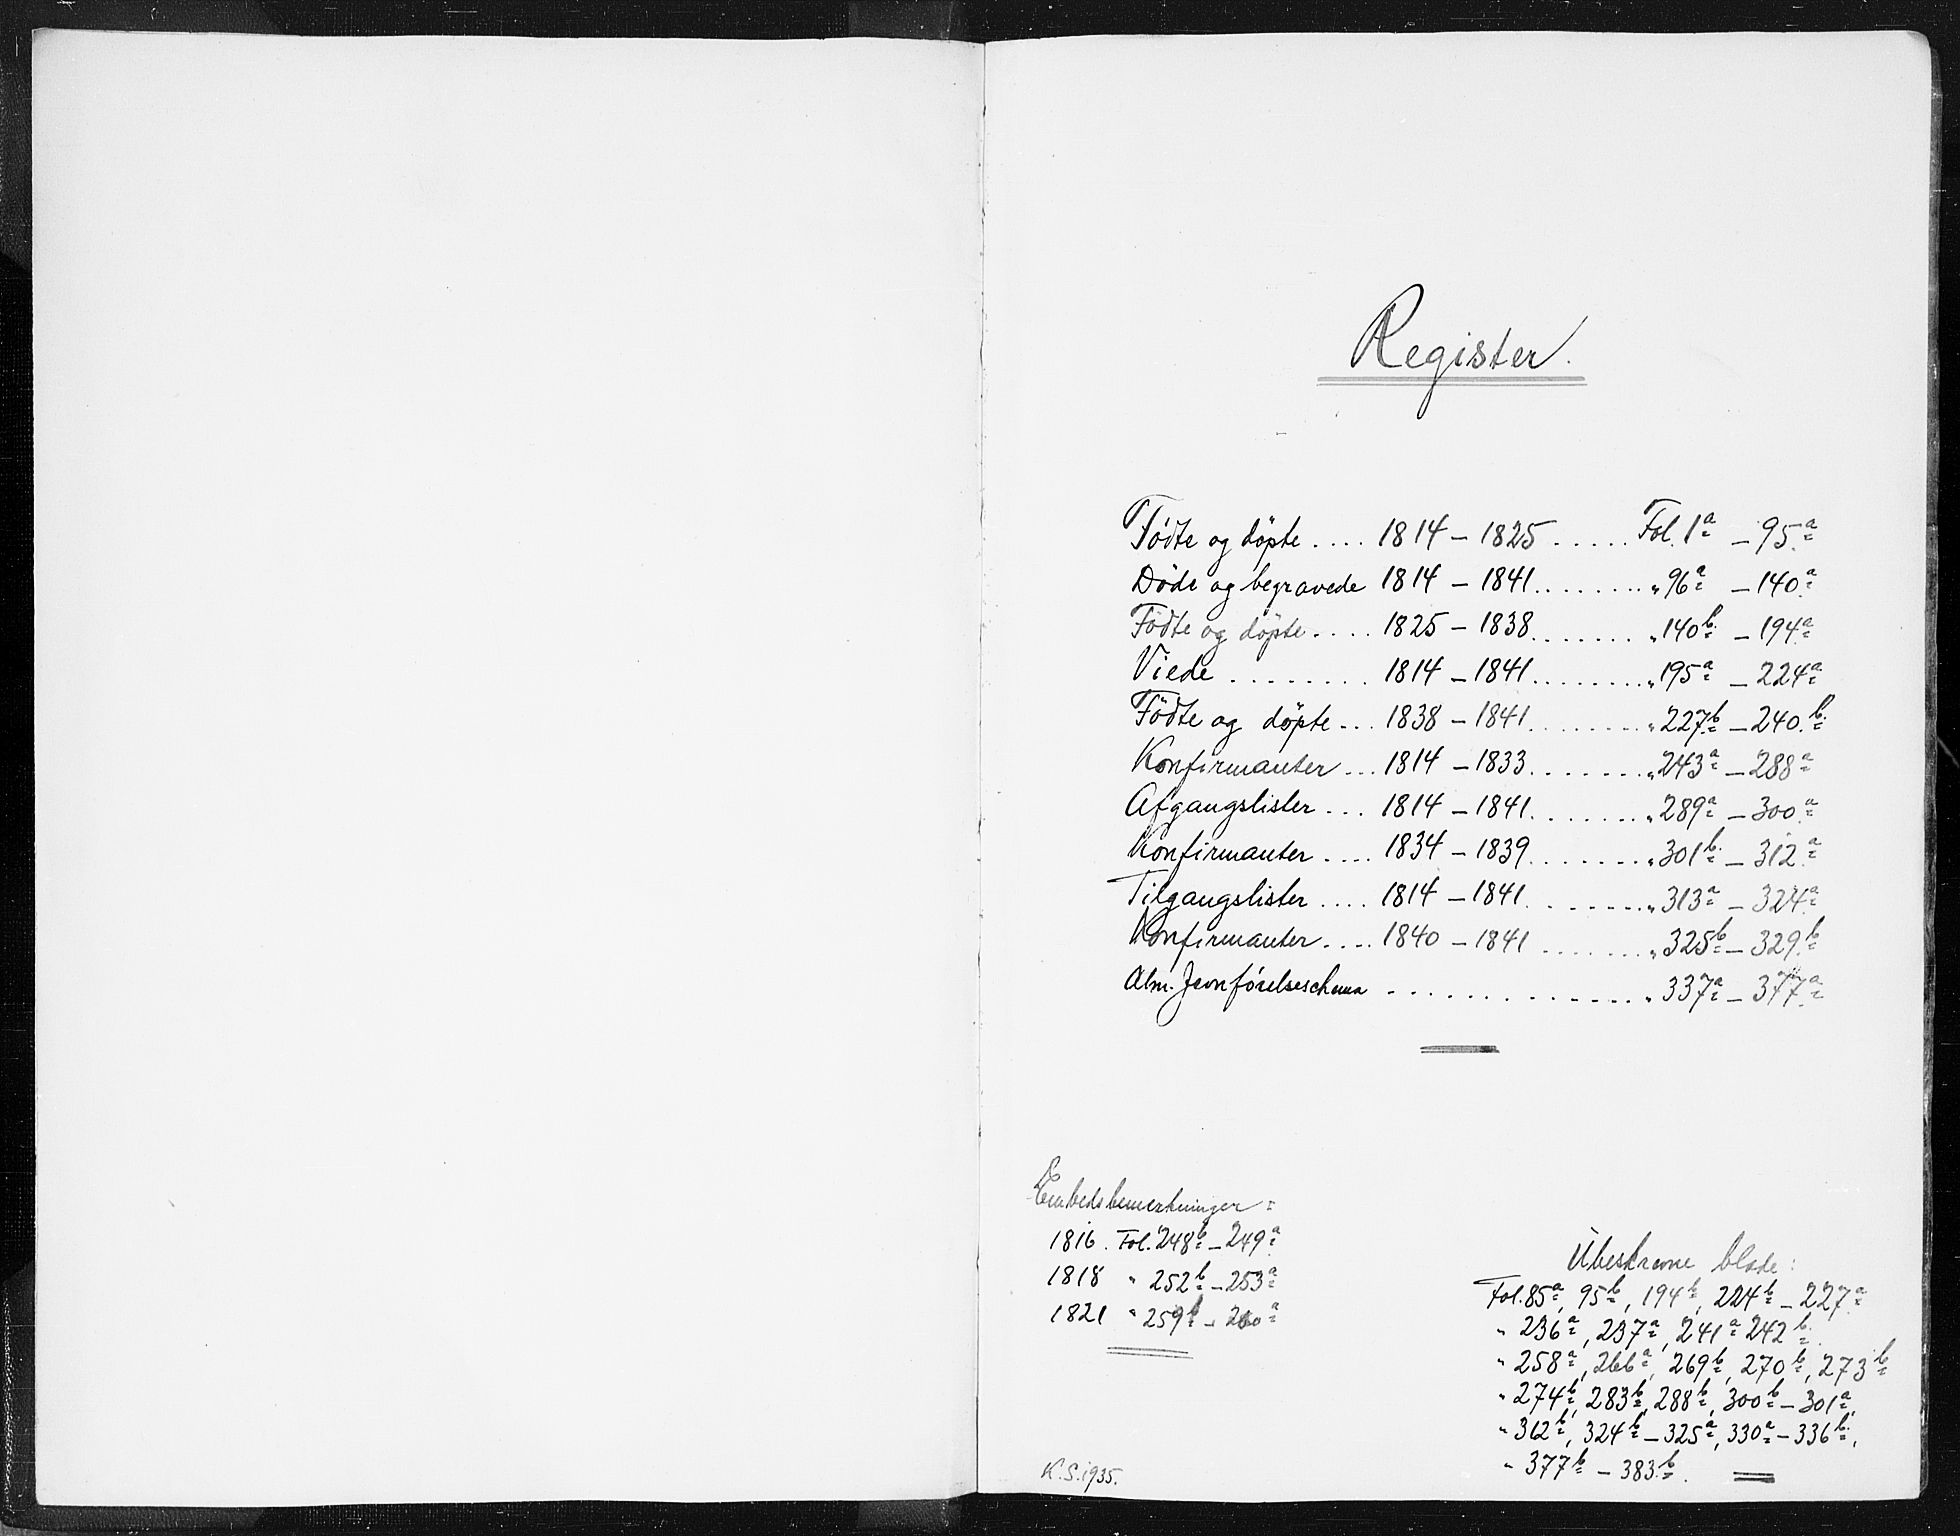 Register.
Födte og döpte .... 1814 – 1825 ..... Fol. 1a – 95a
Döde og begravede 1814 – 1841 ........ " 96a – 140a
Födte og döpte .... 1825 – 1838 ....... " 140b – 194a
Viede ........ 1814 – 1841 ........ " 195a – 224a
Födte og döpte ... 1838 – 1841 ........ " 227b – 240b
Konfirmanter ... 1814 – 1833 ....... " 243a – 288a
Afgangslister ... 1814 – 1841 ....... " 289a – 300a
Konfirmanter .... 1834 – 1839 ....... " 301b – 312a
Tilgangslister .... 1814 – 1841 ....... " 313a – 324a
Konfirmanter .... 1840 – 1841 ....... " 325b – 329b
Alm. Jevnförelseschema .............. " 337a – 377a
Embedsbemerkninger :
1816. Fol. 248b – 249a
1818 " 252b – 253a
1821 " 259b – 260a
Ubeskrevne blade :
Fol. 85a, 95b, 194b, 224b – 227a
" 236a, 237a, 241a 242b
" 258a, 266a, 269b, 270b, 273b
" 274b, 283b, 288b, 300b – 301a,
" 312b, 324b – 325a, 330a – 336b,
" 377b – 383b.
K. S. 1935.